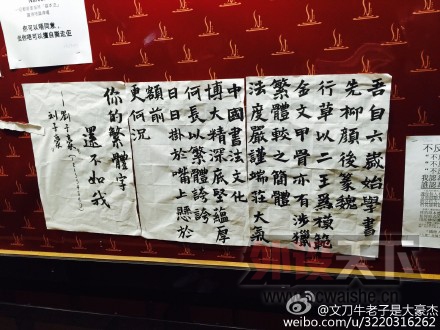 你可以唔同意,
但你唔可以擅自撕走佢
吾自六歲始學書
先柳顏後篆魏
行草以二王爲模範
金文甲骨亦有涉獵
繁體較之簡體
法度嚴謹端莊大氣
中國書法文化
博大精深底堅蘊厚
何長以繁體誇誇
日日掛於嘴上懸於
額前
更何況
你的繁體字
還不如我
——劉子豪
刘子豪
天下
@文刀牛老子是大豪杰
weibo.com/u/3220316262